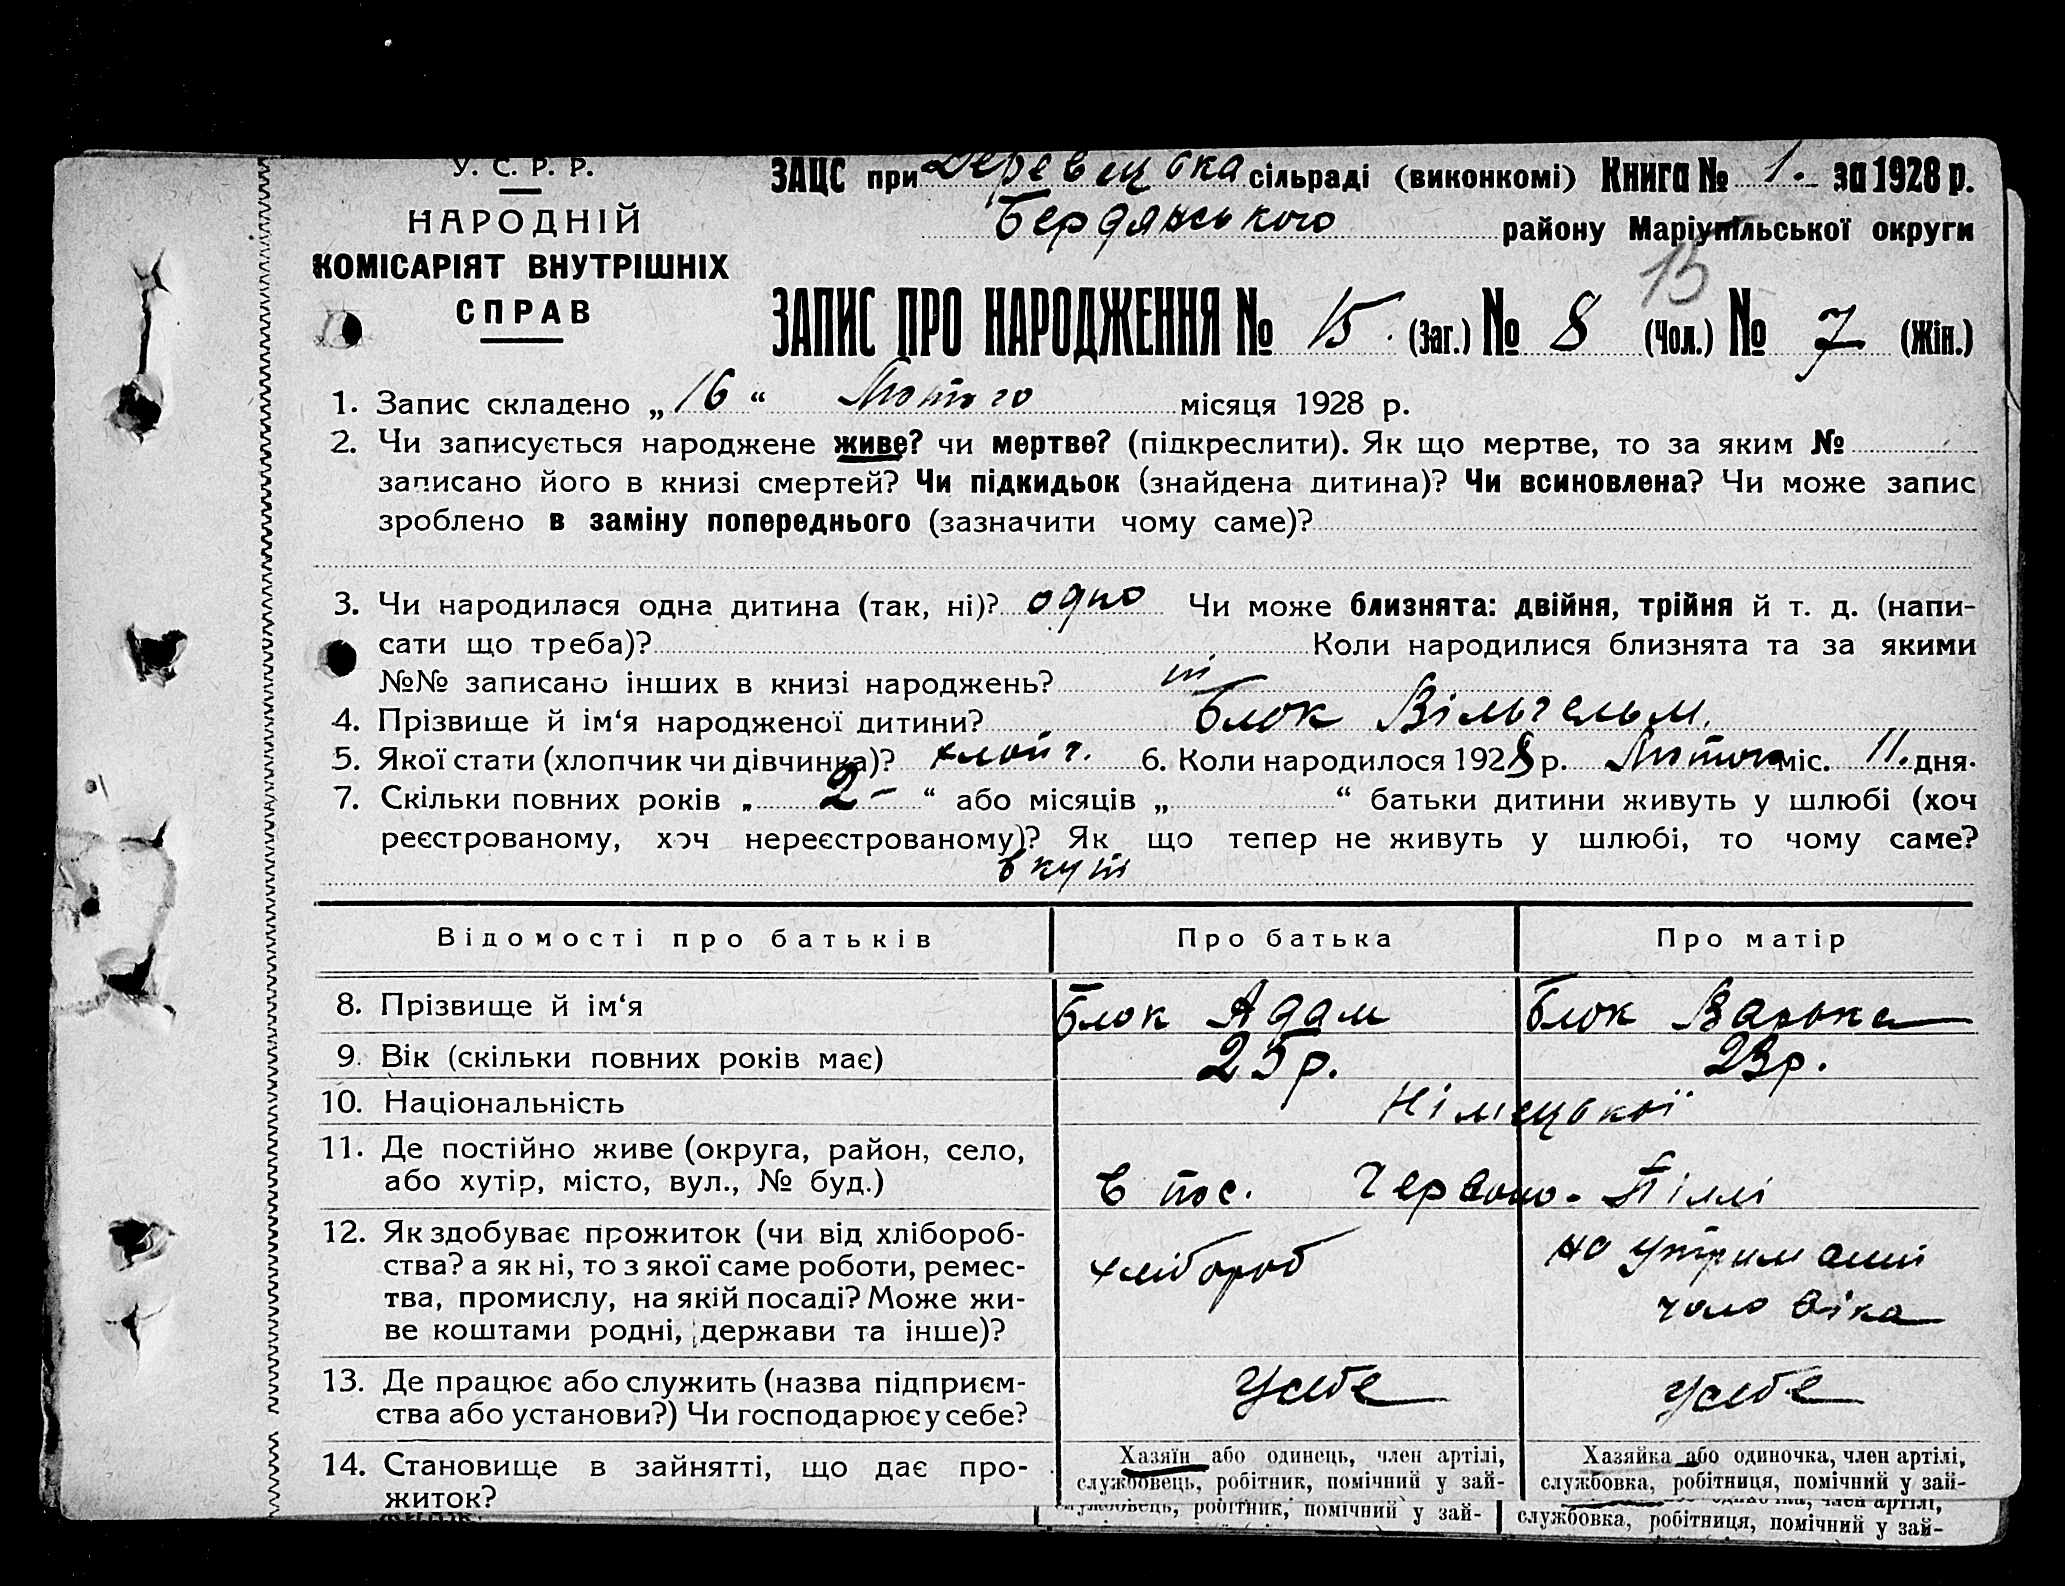 У. С. Р. Р.
НАРОДНІЙ
КОМІСАРІЯТ ВНУТРІШНІХ
СПРАВ
ЗАЦС при Деревецька сільраді (виконкомі) Книга № 1. за 1928 р.
Бердянського району Маріупільської округи
13
ЗАПИС ПРО НАРОДЖЕННЯ № 15. (Заг.) № 8 (Чол.) № 7 (Жін.)
1. Запис складено „16“ Лютого місяця 1928 р.
2. Чи записується народжене живе? чи мертве? (підкреслити). Як що мертве, то за яким №
записано його в книзі смертей? Чи підкидьок (знайдена дитина)? Чи всиновлена? Чи може запис
зроблено в заміну попереднього (зазначити чому саме)?
3. Чи народилася одна дитина (так, ні)? одно Чи може близнята: двійня, трійня й т. д. (напи-
сати що треба)? Коли народилися близнята та за якими
№№ записано інших в книзі народжень?
4. Прізвище й ім‘я народженої дитини? Блок Вільгельм.
5. Якої стати (хлопчик чи дівчинка)? хлопч. 6. Коли народилося 1928 р. Лютого міс. 11. дня.
7. Скільки повних років „ 2 - “ або місяців „ “ батьки дитини живуть у шлюбі (хоч
реєстрованому, хоч нереєстрованому)? Як що тепер не живуть у шлюбі, то чому саме?
Відомості про батьків Про батька Про матір
8. Прізвище й ім‘я Блок Адам Блок Варька
9. Вік (скільки повних років має) 25 р. 23 р.
10. Національність Німецької
11. Де постійно живе (округа, район, село,
або хутір, місто, вул., № буд.) в пос. Червоно-Піллі
12. Як здобуває прожиток (чи від хлібороб-
ства? а як ні, то з якої саме роботи, ремес-
тва, промислу, на якій посаді? Може жи-
ве коштами родні, держави та інше)?
хлібороб на утриманні
чоловіка
13. Де працює або служить (назва підприєм-
ства або установи?) Чи господарює у себе?
усебе усебе
14. Становище в зайнятті, що дає про-
житок?
Хазяїн або одинець, член артілі,
службовець, робітник, помічний у зай-
Хазяйка або одиночка, член артілі,
службовка, робітниця, помічний у зай-
службовець, робітник, помічний у зай-
службовка, робітниця, помічний у зай-